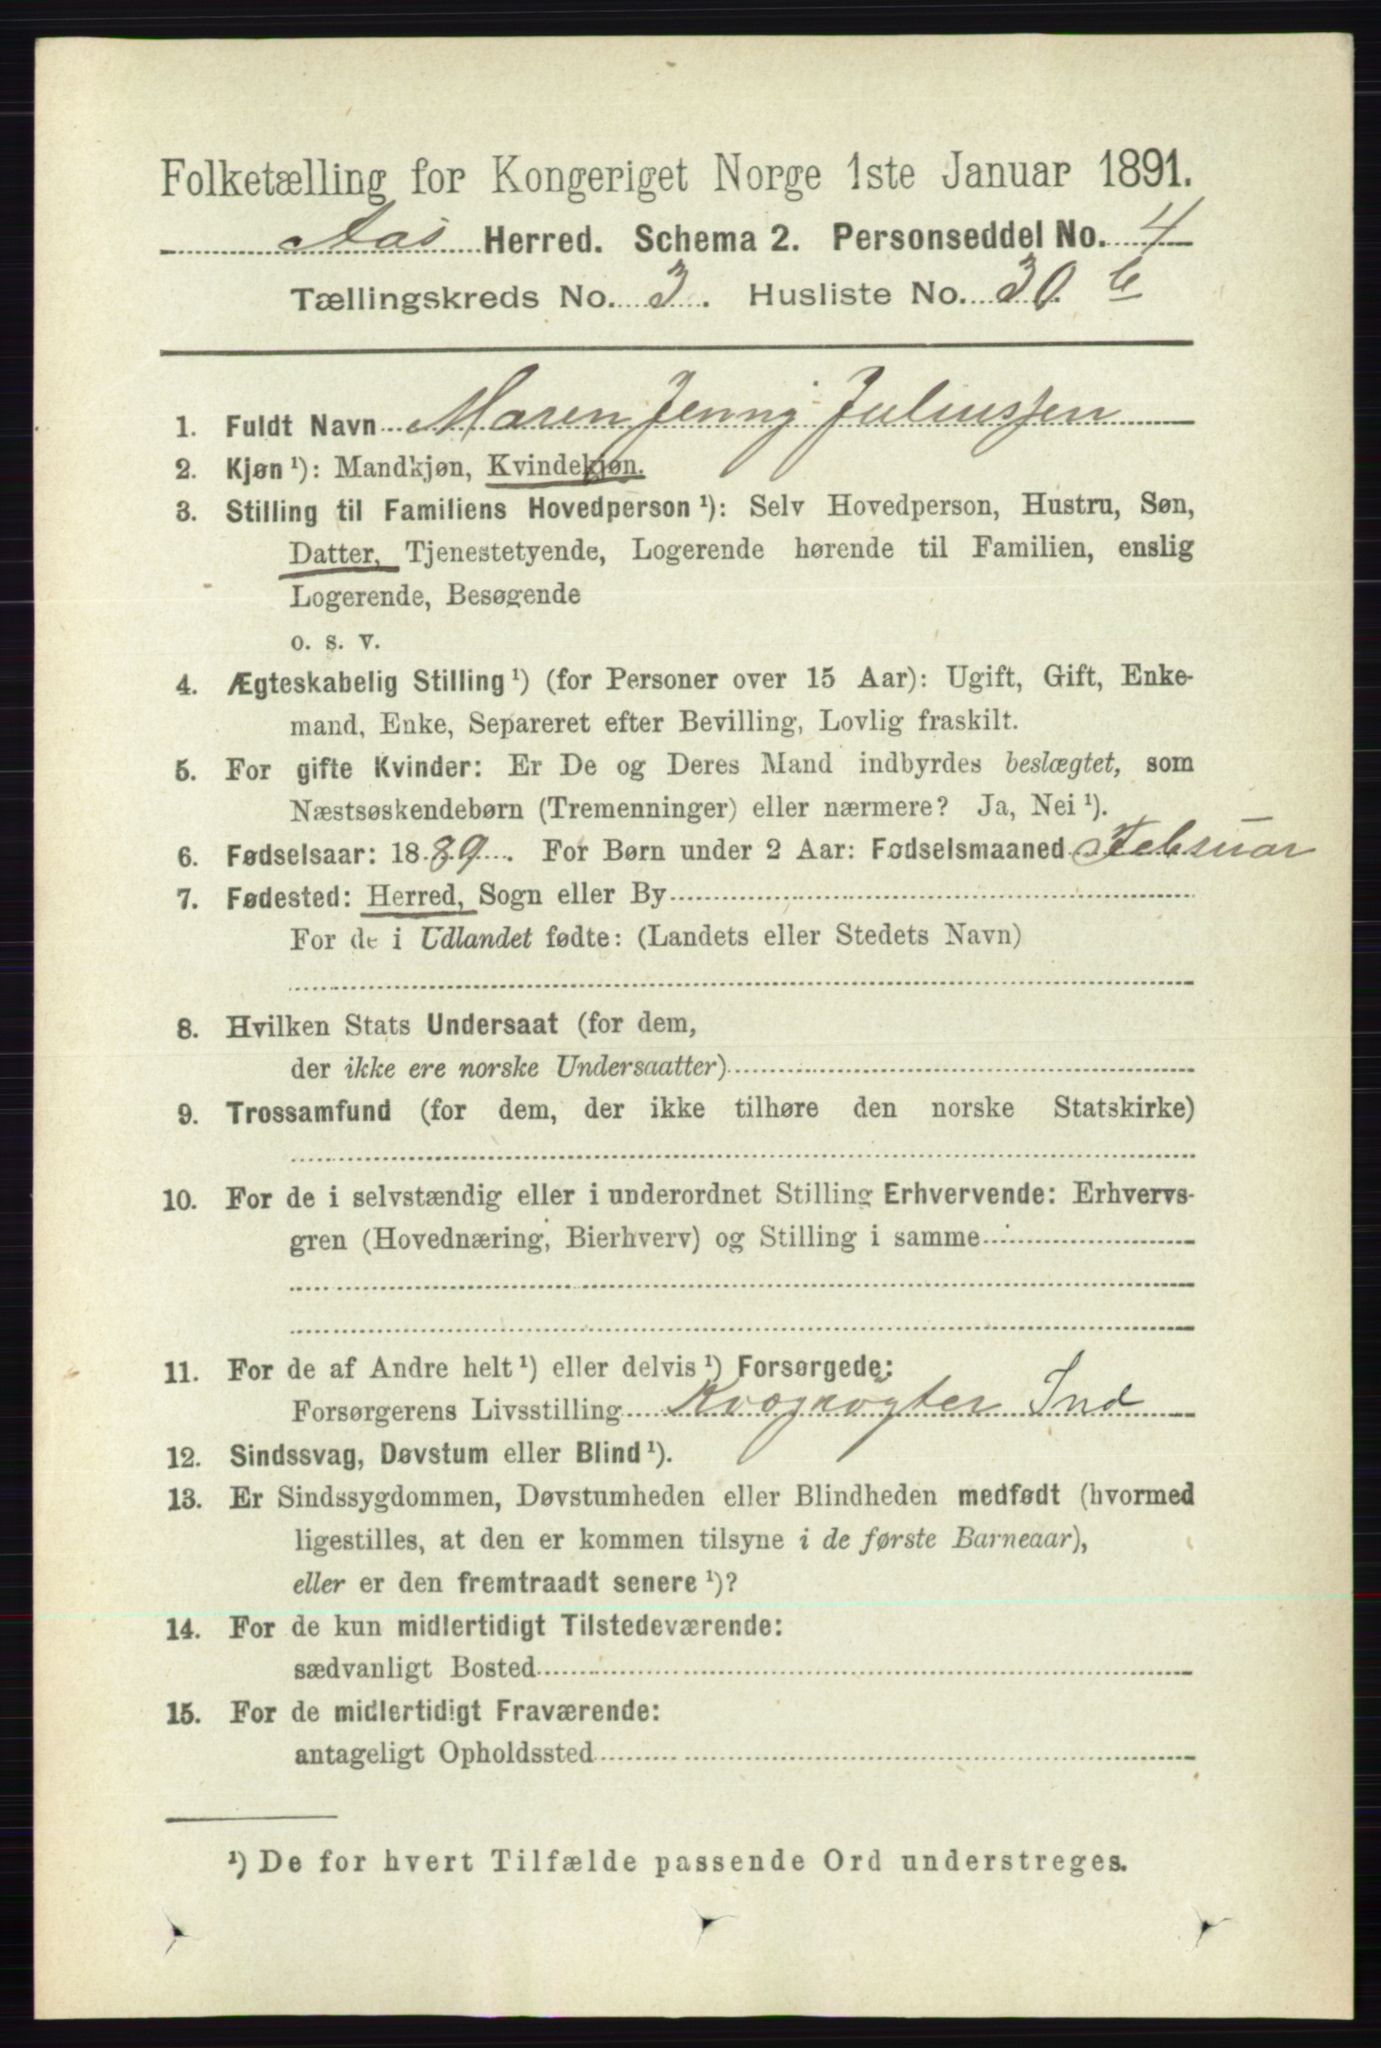 Folketælling for Kongeriget Norge 1ste Januar 1891.
Aas Herred. Schema 2. Personseddel No. 4
Tællingskreds No. 3. Husliste No. 30 b
1. Fuldt Navn Maren Jenny Juliussen
2. Kjøn ¹): Mandkjøn, Kvindekjøn.
3. Stilling til Familiens Hovedperson ¹): Selv Hovedperson, Hustru, Søn,
Datter, Tjenestetyende, Logerende hørende til Familien, enslig
Logerende, Besøgende
o. s. v.
4. Ægteskabelig Stilling ¹) (for Personer over 15 Aar): Ugift, Gift, Enke-
mand, Enke, Separeret efter Bevilling, Lovlig fraskilt.
5. For gifte Kvinder: Er De og Deres Mand indbyrdes beslægtet, som
Næstsøskendebørn (Tremenninger) eller nærmere? Ja, Nei ¹).
6. Fødselsaar: 1889. For Børn under 2 Aar: Fødselsmaaned Februar
7. Fødested: Herred, Sogn eller By
For de i Udlandet fødte: (Landets eller Stedets Navn)
8. Hvilken Stats Undersaat (for dem,
der ikke ere norske Undersaatter)
9. Trossamfund (for dem, der ikke tilhøre den norske Statskirke)
10. For de i selvstændig eller i underordnet Stilling Erhvervende: Erhvervs-
gren (Hovednæring, Bierhverv) og Stilling i samme
11. For de af Andre helt ¹) eller delvis ¹) Forsørgede:
Forsørgerens Livsstilling Kvægrøgter Ind
12. Sindssvag, Døvstum eller Blind ¹).
13. Er Sindssygdommen, Døvstumheden eller Blindheden medfødt (hvormed
ligestilles, at den er kommen tilsyne i de første Barneaar),
eller er den fremtraadt senere ¹)?
14. For de kun midlertidigt Tilstedeværende:
sædvanligt Bosted
15. For de midlertidigt Fraværende:
antageligt Opholdssted
¹) De for hvert Tilfælde passende Ord understreges.